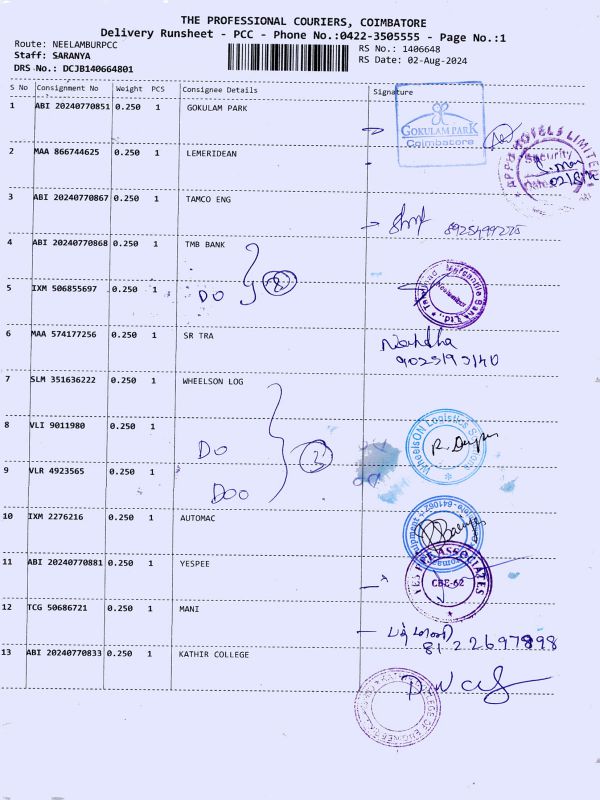 THE PROFESSIONAL COURIERS, COIMBATORE
Delivery Runsheet - PCC - Phone No.:0422-3505555 - Page No.:1
Route: NEELAMBURPCC
RS No.: 1406648
Staff: SARANYA
RS Date: 02-Aug-2024
DRS No.: DCJB140664801
S No Consignment No Weight PCS Consignee Details Signature
1 ABI 20240770851 0.250 1 GOKULAM PARK
GOKULAM PARK
Coimbatore
2 MAA 866744625 0.250 1 LEMERIDEAN
APPU HOTELS LIMITED
Security
3 ABI 20240770867 0.250 1 TAMCO ENG
4 ABI 20240770868 0.250 1 TMB BANK
5 IXM 506855697 0.250 1 DO
Tamilnad Mercantile Bank Ltd.
6 MAA 574177256 0.250 1 SR TRA
7 SLM 351636222 0.250 1 WHEELSON LOG
8 VLI 9011980 0.250 1 DO
WheelsON Logistics
9 VLR 4923565 0.250 1 DOO
10 IXM 2276216 0.250 1 AUTOMAC
11 ABI 20240770881 0.250 1 YESPEE
ASSOCIATES
CBE-62
12 TCG 50686721 0.250 1 MANI
8122697898
13 ABI 20240770833 0.250 1 KATHIR COLLEGE
COLLEGE OF ENGINEERING